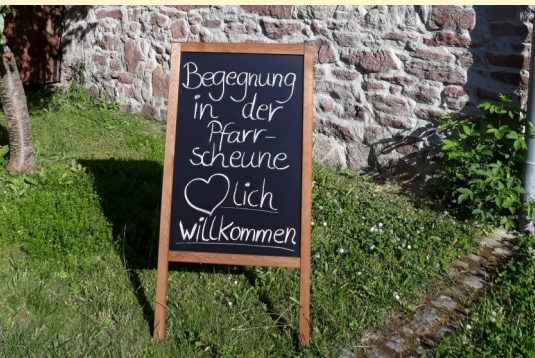 Begegnung
in der
Pfarr-
scheune
♡lich
willkommen